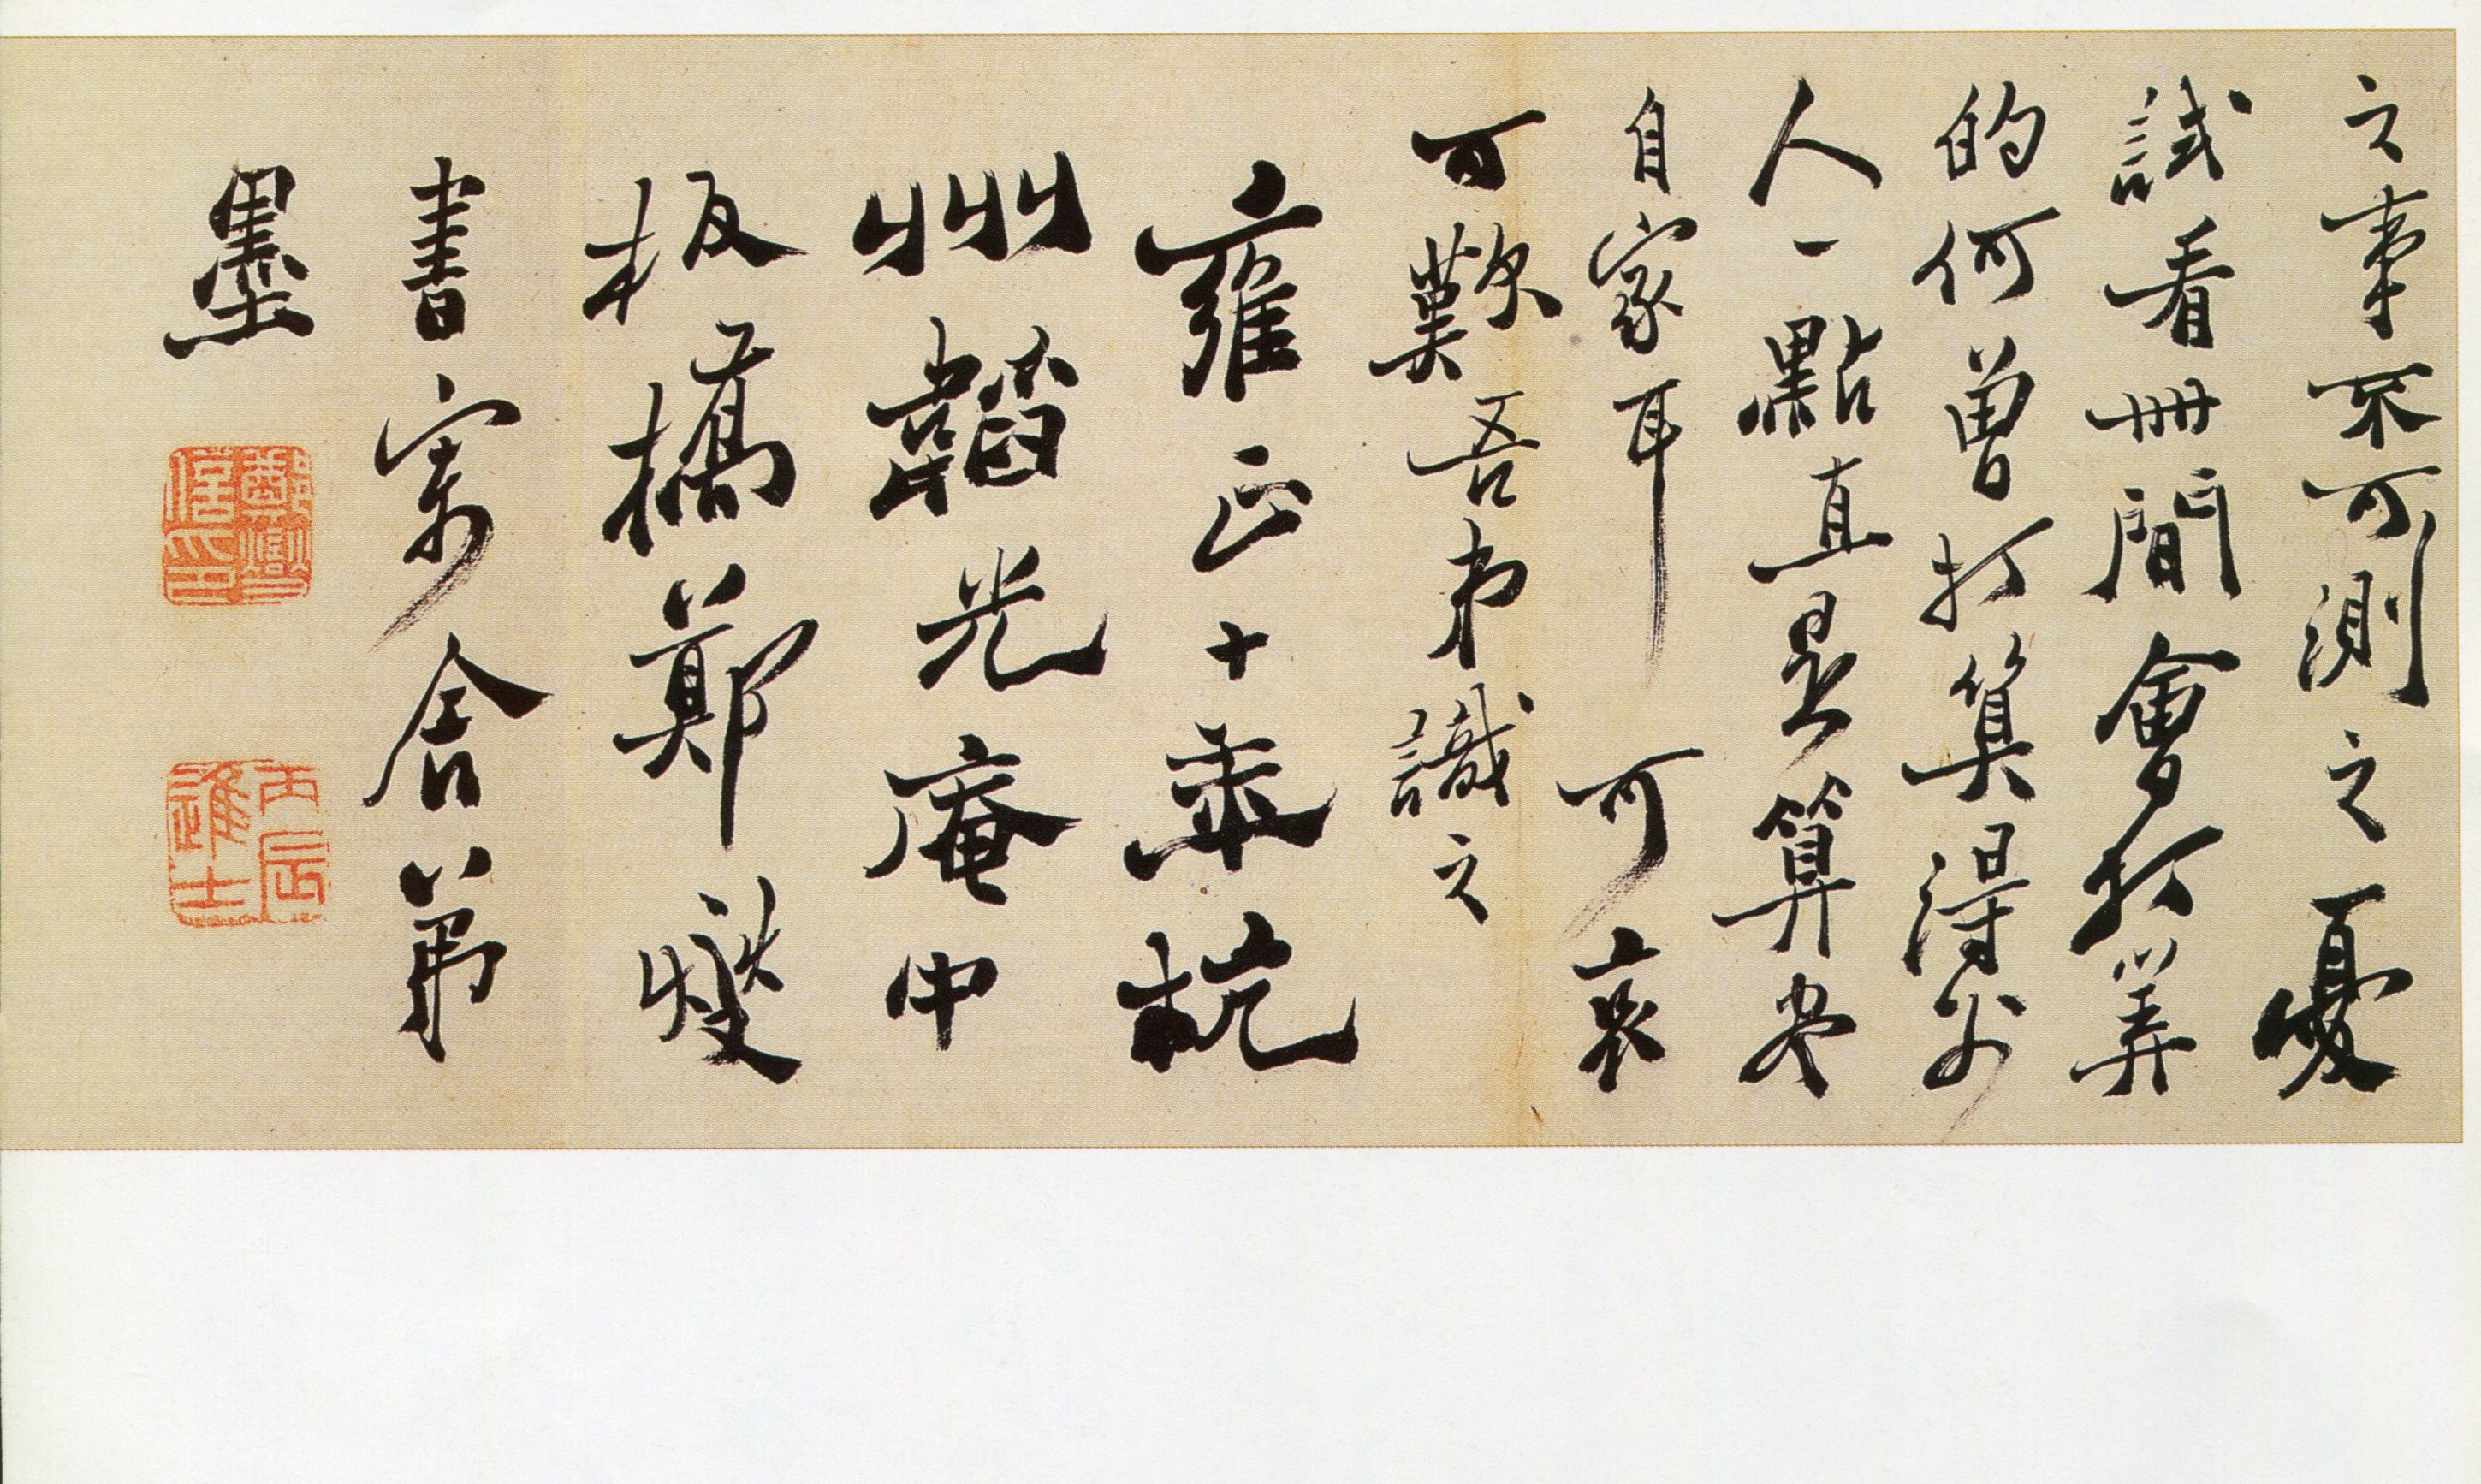 之事不可測之憂
試看世間會打筭
的何曾打算得別
人一點直是算尽
自家耳可哀
可歎吾弟識之
雍正十年杭
州韜光庵中
板橋鄭燮
書寄舍弟
墨
鄭燮信印
丙辰進士